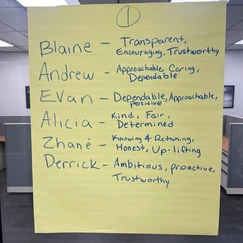 1
Blaine – Transparent,
Encouraging, Trustworthy
Andrew – Approachable, Caring,
Dependable
Evan – Dependable, Approachable,
positive
Alicia – Kind, Fair,
Determined
Zhané – Knowing & Retaining,
Honest, Up-lifting
Derrick – Ambitious, proactive,
Trustworthy